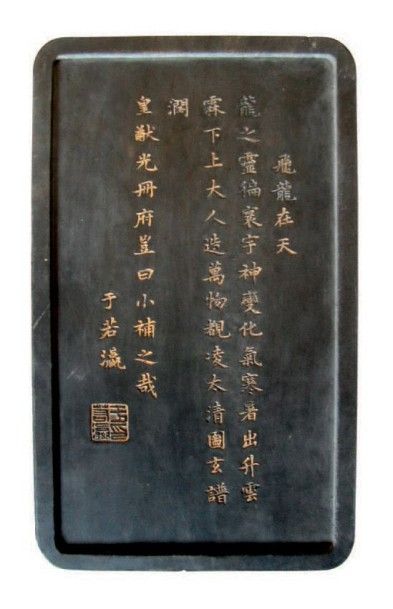 飛龍在天
龍之靈徧寰宇神變化氣寒暑出升雲
霖下上大人造萬物覩凌太清圖玄譜
潤
皇猷光冊府豈曰小補之哉
于若瀛